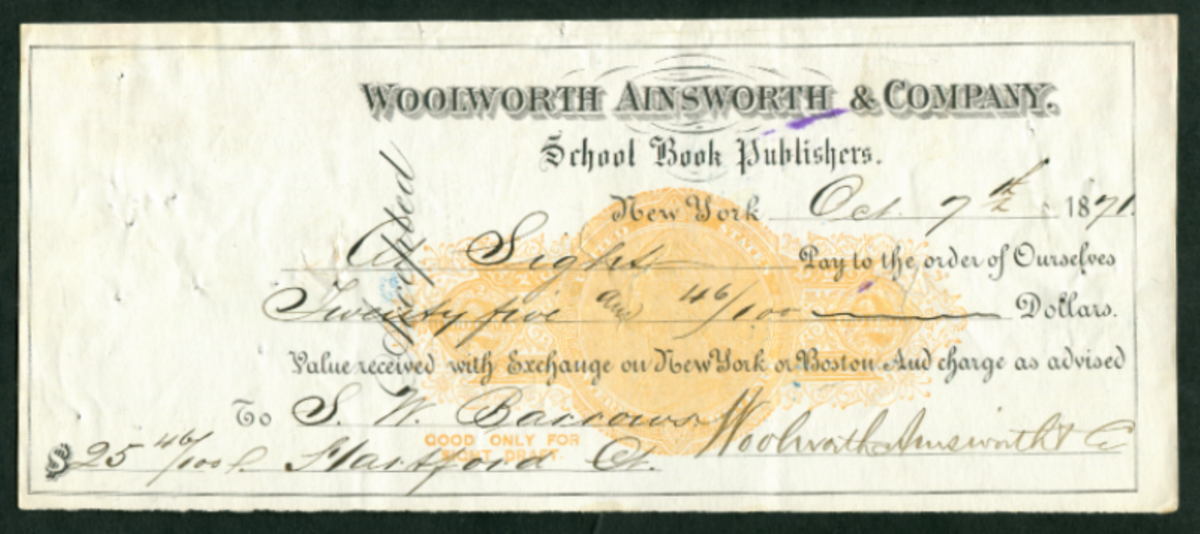 WOOLWORTH AINSWORTH & COMPANY.
School Book Publishers.
New York Oct. 7th 1871.
At Sight Pay to the order of Ourselves
Twenty five and 46/100 Dollars.
Value received with Exchange on New York or Boston And charge as advised
To S. W. Barrows Woolworth Ainsworth & Co
$25 46/100 Hartford Ct.
Accepted
UNITED STATES
GOOD ONLY FOR
SIGHT DRAFT.